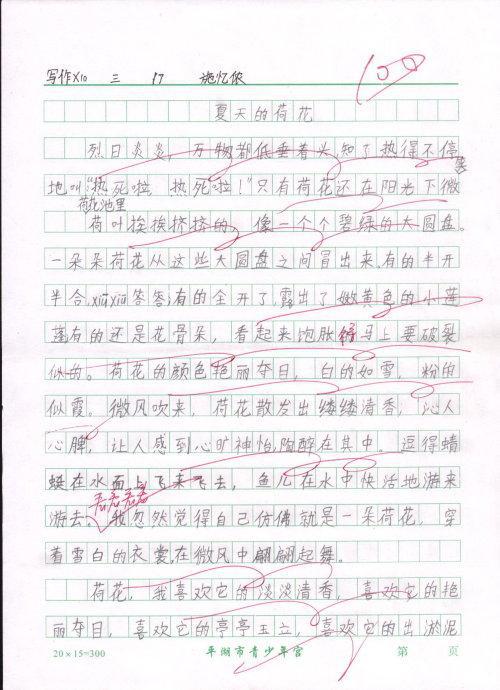 写作X10 三 17 施忆侬
100
夏天的荷花
烈日炎炎，万物都低垂着头，知了热得不停
地叫：“热死啦，热死啦！”只有荷花还在阳光下微笑
荷花池里
荷叶挨挨挤挤的，像一个个碧绿的大圆盘。
一朵朵荷花从这些大圆盘之间冒出来。有的半开
半合，xiūxiū答答；有的全开了，露出了嫩黄色的小莲
蓬；有的还是花骨朵，看起来饱胀得马上要破裂
似的。荷花的颜色艳丽夺目，白的如雪，粉的
似霞。微风吹来，荷花散发出缕缕清香，沁人
心脾，让人感到心旷神怡，陶醉在其中。逗得蜻
蜓在水面上飞来飞去，鱼儿在水中快活地游来
游去。我忽然觉得自己仿佛就是一朵荷花，穿
着雪白的衣裳，在微风中翩翩起舞。
荷花，我喜欢它的淡淡清香，喜欢它的艳
丽夺目，喜欢它的亭亭玉立，喜欢它的出淤泥
20×15=300 平湖市青少年宫 第 页